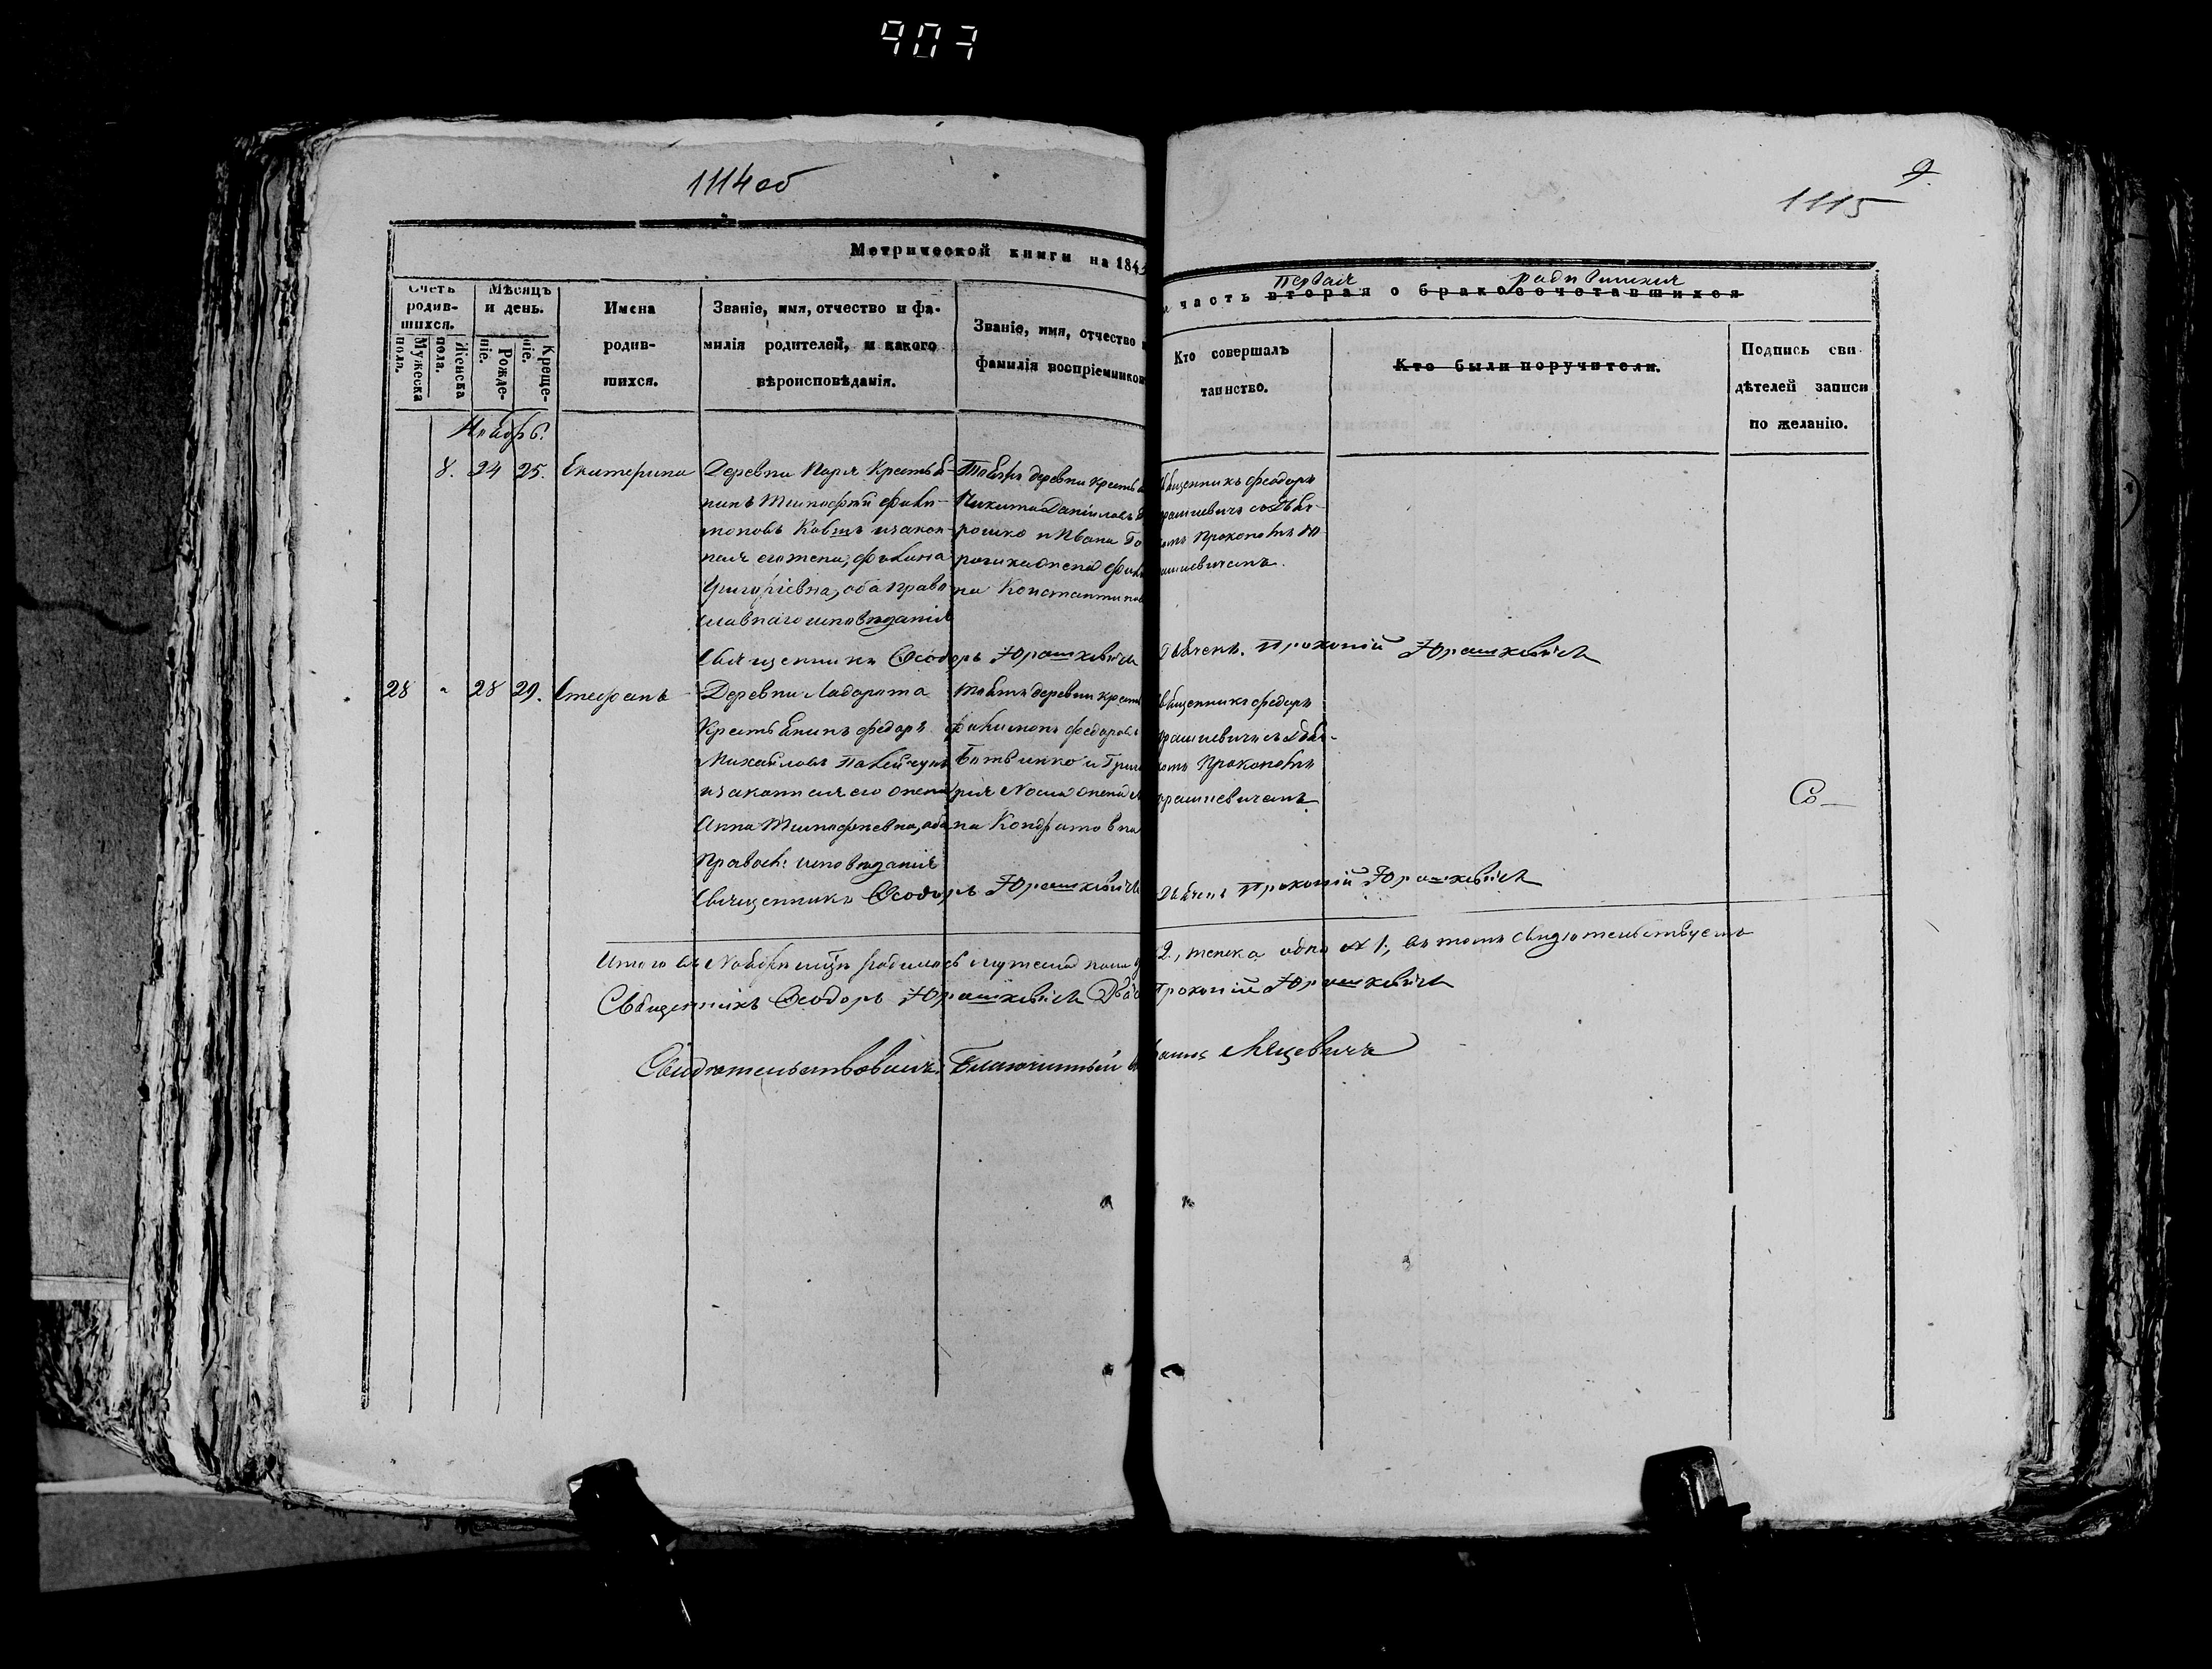 907
1114 об
9.
1115
Метрической книги на 184
часть вторая о бракосочетавшихся
первая родившихся
Счетъ родив-шихся.
Мужеска пола.
Женска пола.
Мѣсяцъ и день.
Рожде-ніе.
Креще-ніе.
Имена
родив-
шихся.
Званіе, имя, отчество и фа-
милія родителей, и какого
вѣроисповѣданія.
Званіе, имя, отчество и
фамилія воспріемников
Кто совершалъ
таинство.
Кто были поручители.
Подпись сви-
дѣтелей записи
по желанію.
Ноябрь.
8. 24 25. Екатерина
Деревни Паря Крестья-
нинъ Тимофей Фили-
моновъ и закон-
ная его жена,
Григоріевна, оба право
славнаго исповѣданія
Таяжъ деревни крестья
Никита Даніиловъ
рошко и Ивана Го
жена
на Константинов
Священникъ Феодоръ
рашкевичъ съ Дья-
комъ Прокопомъ Ю
ашкевичемъ.
Священникъ Ѳеодоръ Юрашкевичъ Дьячекъ. Прокопій Юрашкевичъ
28 " 28 29. Стефанъ
Деревни Ладорота
Крестьянинъ Федоръ
Михайловъ
и законная его жена
Анна Тимофеевна, оба
Правосл: исповѣданія
деревни крест
Филимонъ Федоровъ
Ботвинко и Григо
рія Носа жена
на Кондратовна
Священникъ Федоръ
рашкевичъ съ Дья-
комъ Прокопомъ
рашкевичемъ
Со
Священникъ Ѳеодоръ Юрашкевичъ Дьячекъ Прокопій Юрашкевичъ
Итого въ Ноябрѣ мцѣ родилось мужеска пола 2, женска одна 1, въ томъ свидѣтельствуемъ
Священникъ Ѳеодоръ Юрашкевичъ Дьяч Прокопій Юрашкевичъ
Свидѣтельствовалъ: Благочинный Мацевичъ